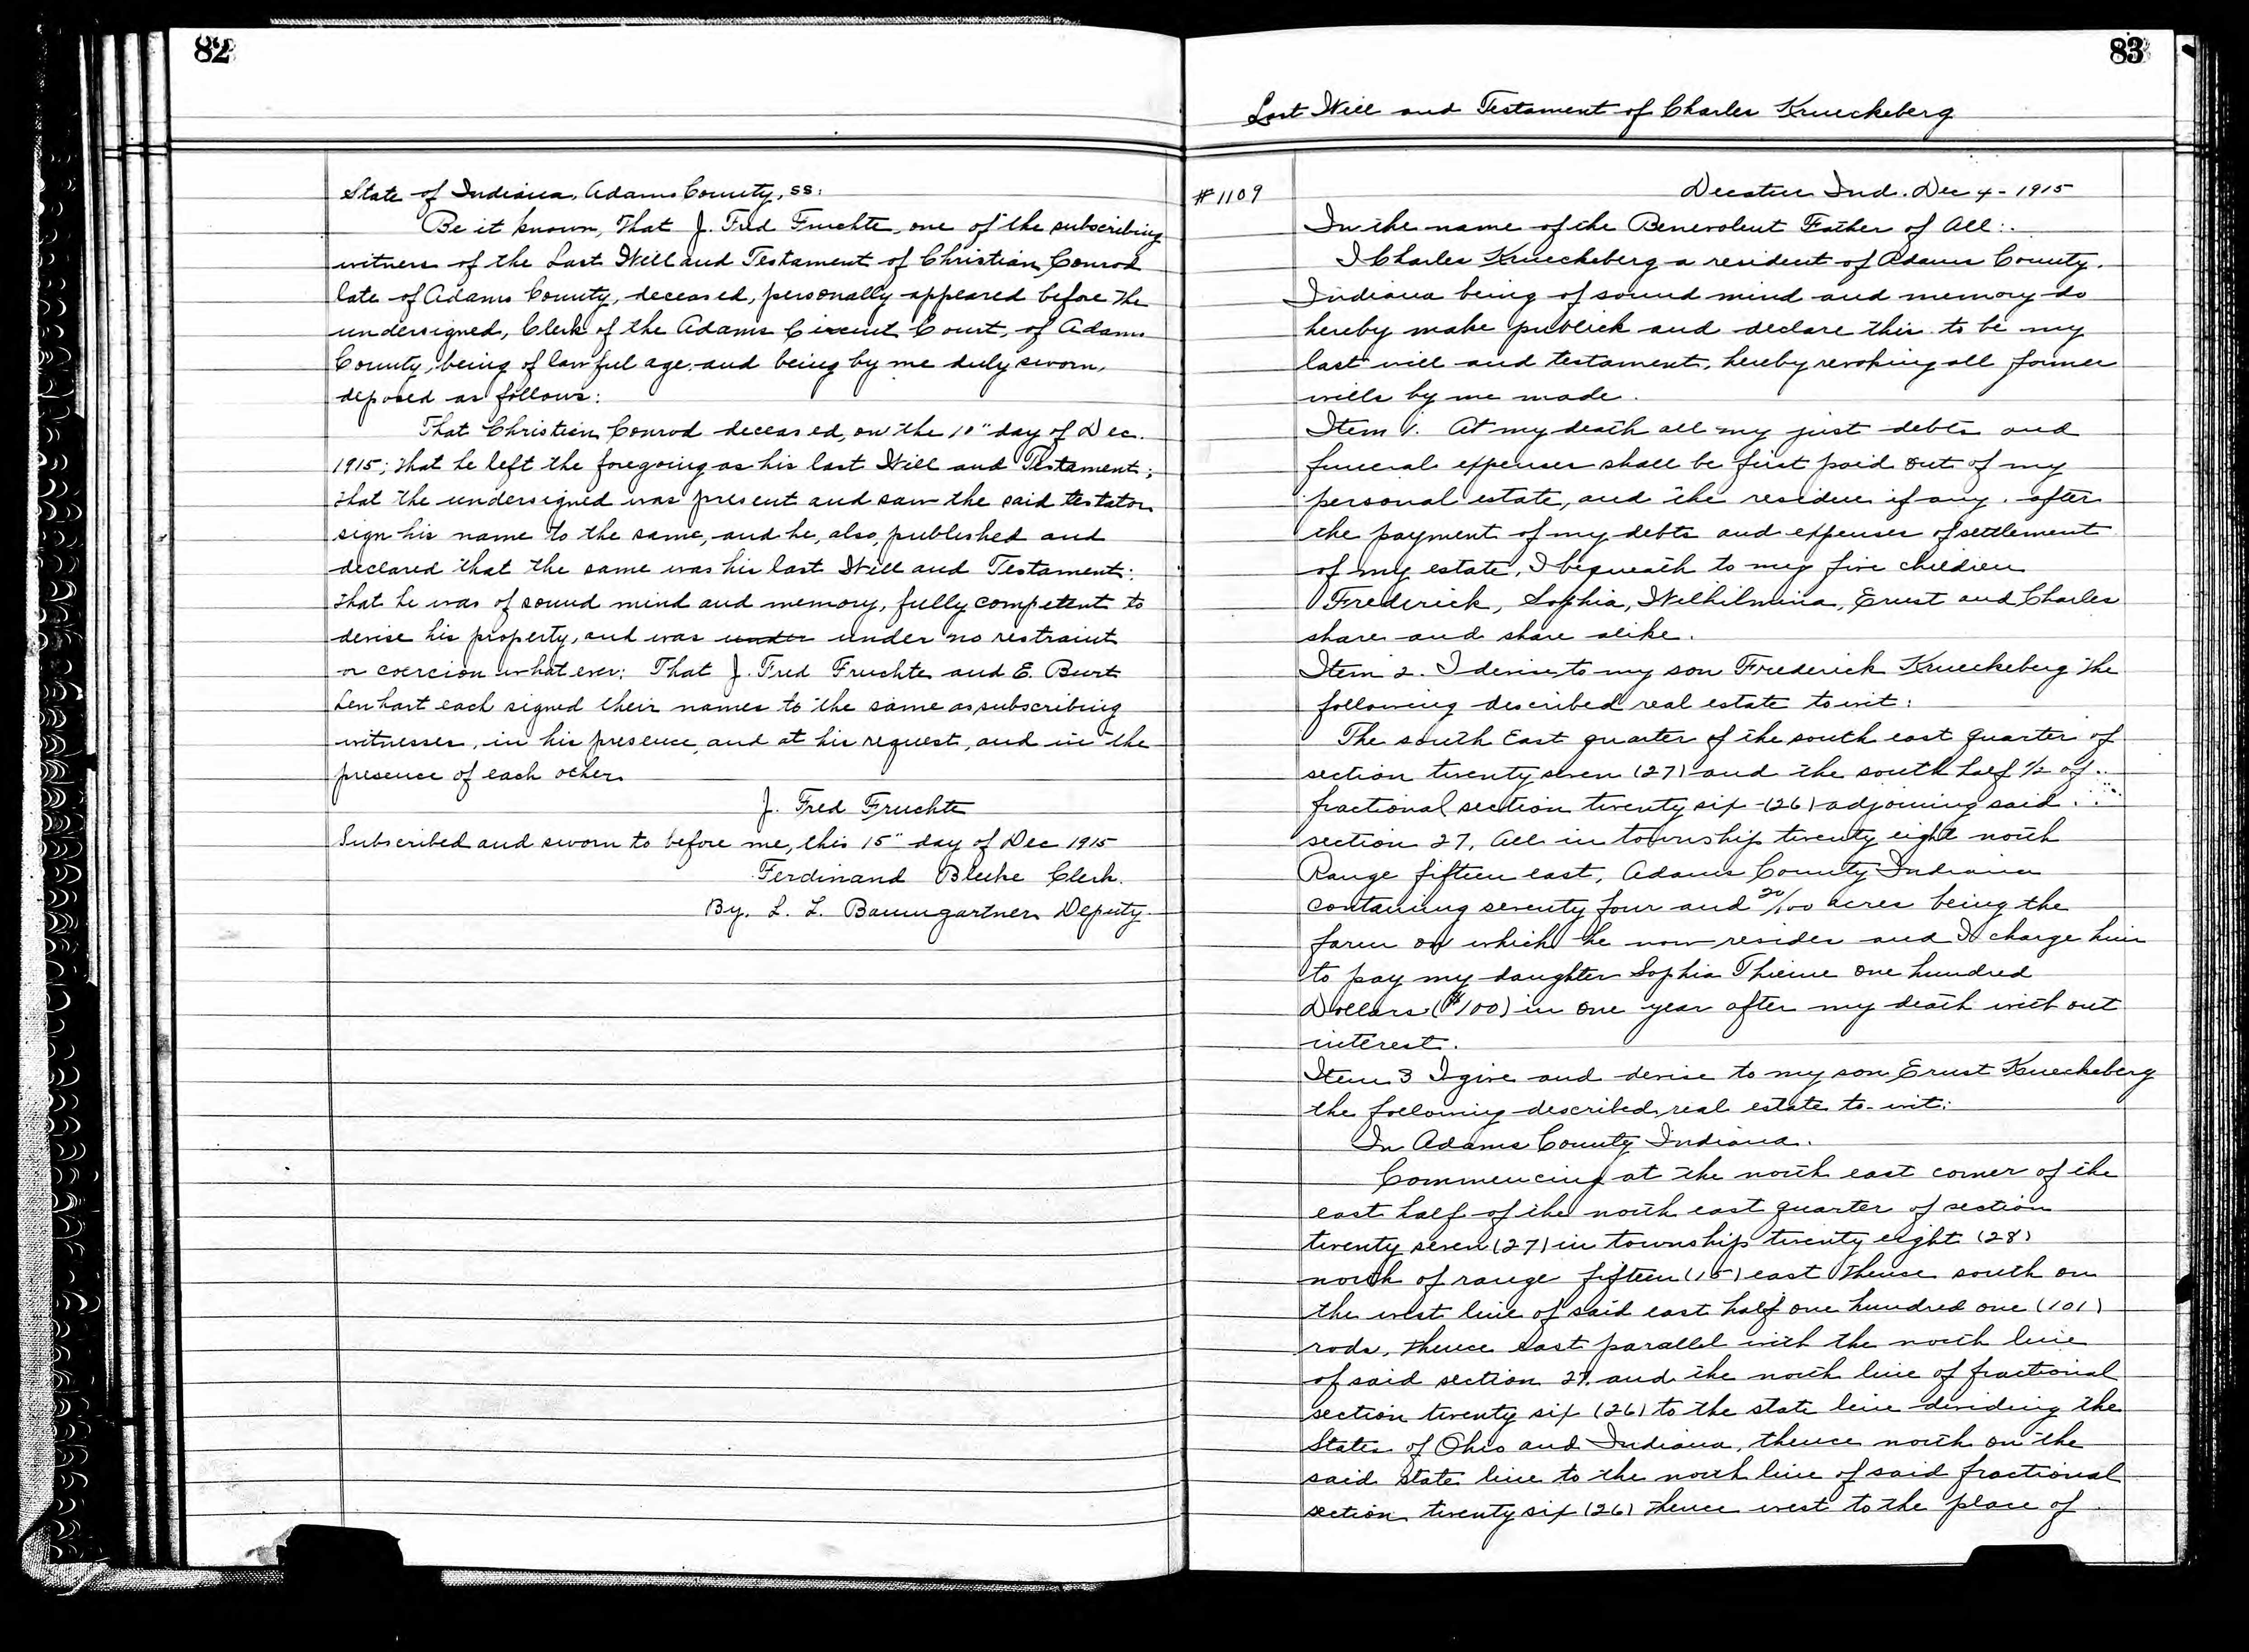 82
State of Indiana, Adams County, ss:
Be it known, That J. Fred Fruchte, one of the subscribing
witness of the Last Will and Testament of Christian Conrad
late of Adams County, deceased, personally appeared before the
undersigned, Clerk of the Adams Circuit Court, of Adams
County, being of lawful age, and being by me duly sworn,
deposed as follows:
That Christian Conrod deceased, on the 10" day of Dec.
1915; that he left the foregoing as his last Will and Testament;
that the undersigned was present and saw the said testator
sign his name to the same, and he, also, published and
declared that the same was his last Will and Testament;
that he was of sound mind and memory, fully competent to
devise his property, and was under under no restraint
or coercion whatever; That J. Fred Fruchte and E. Burt
Lenhart each signed their names to the same as subscribing
witnesses, in his presence, and at his request, and in the
presence of each other.
J. Fred Fruchte
Subscribed and sworn to before me, this 15" day of Dec 1915
Ferdinand Bleeke Clerk.
By. L. L. Baumgartner Deputy.
83
Last Will and Testament of Charles Krueckeberg
#1109
Decatur Ind. Dec 4 - 1915
In the name of the Benevolent Father of All:
I Charles Krueckeberg a resident of Adams County.
Indiana being of sound mind and memory do
hereby make publick and declare this to be my
last will and testament, hereby revoking all former
wills by me made.
Item 1. At my death all my just debts and
funeral expenses shall be first paid out of my
personal estate, and the residue if any, after
the payment of my debts and expenses of settlement
of my estate, I bequeath to my five children
Frederick, Sophia, Wilhilmina, Ernst and Charles
share and share alike.
Item 2. I devise to my son Frederick Krueckeberg the
following described real estate towit:
The south East quarter of the south east quarter of
section twenty seven (27) and the south half 1/2 of
fractional section twenty six (26) adjoining said
section 27, All in township twenty eight north
Range fifteen east, Adams County Indiana
containing seventy four and 20/100 acres being the
farm on which he now resides and I charge him
to pay my daughter Sophia Thieme one hundred
Dollars ($100) in one year after my death with out
interest.
Item 3 I give and devise to my son Ernst Krueckeberg
the following described real estate to-wit:
In Adams County Indiana.
Commencing at the north east corner of the
east half of the north east quarter of section
twenty seven (27) in township twenty eight (28)
north of range fifteen (15) east thense south on
the west line of said east half one hundred one (101)
rods, thence east parallel with the north line
of said section 27. and the north line of fractional
section twenty six (26) to the state line dividing the
States of Ohio and Indiana, thence north on the
said state line to the north line of said fractional
section twenty six (26) thence west to the place of